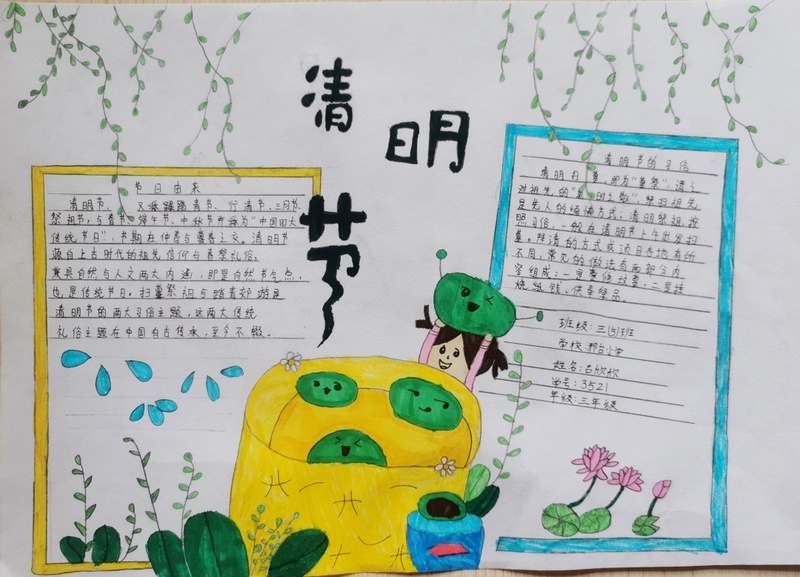 清明节
节日由来
清明节，又称踏青节、行清节、三月节、
祭祖节，与春节、端午节、中秋节并称为“中国四大
传统节日”，节期在仲春与暮春之交。清明节
源自上古时代的祖先信仰与春祭礼俗，
兼具自然与人文两大内涵，即是自然节气点，
也是传统节日，扫墓祭祖与踏青郊游是
清明节的两大习俗主题，这两大传统
礼俗主题在中国自古传承，至今不辍。
清明节的习俗
清明扫墓，即为“墓祭”，谓之
对祖先的“思时之敬”，祭扫祖先
是先人的缅怀方式；清明祭祖，按
照习俗，一般在清明节上午出发扫
墓。拜清的方式或项目各地有所
不同，常见的做法有两部分内
容组成：一是整修坟墓，二是挂
烧纸钱，供奉祭品
班级：三(5)班
学校：邢台小学
姓名：欣欣
学号：3521
年级：三年级